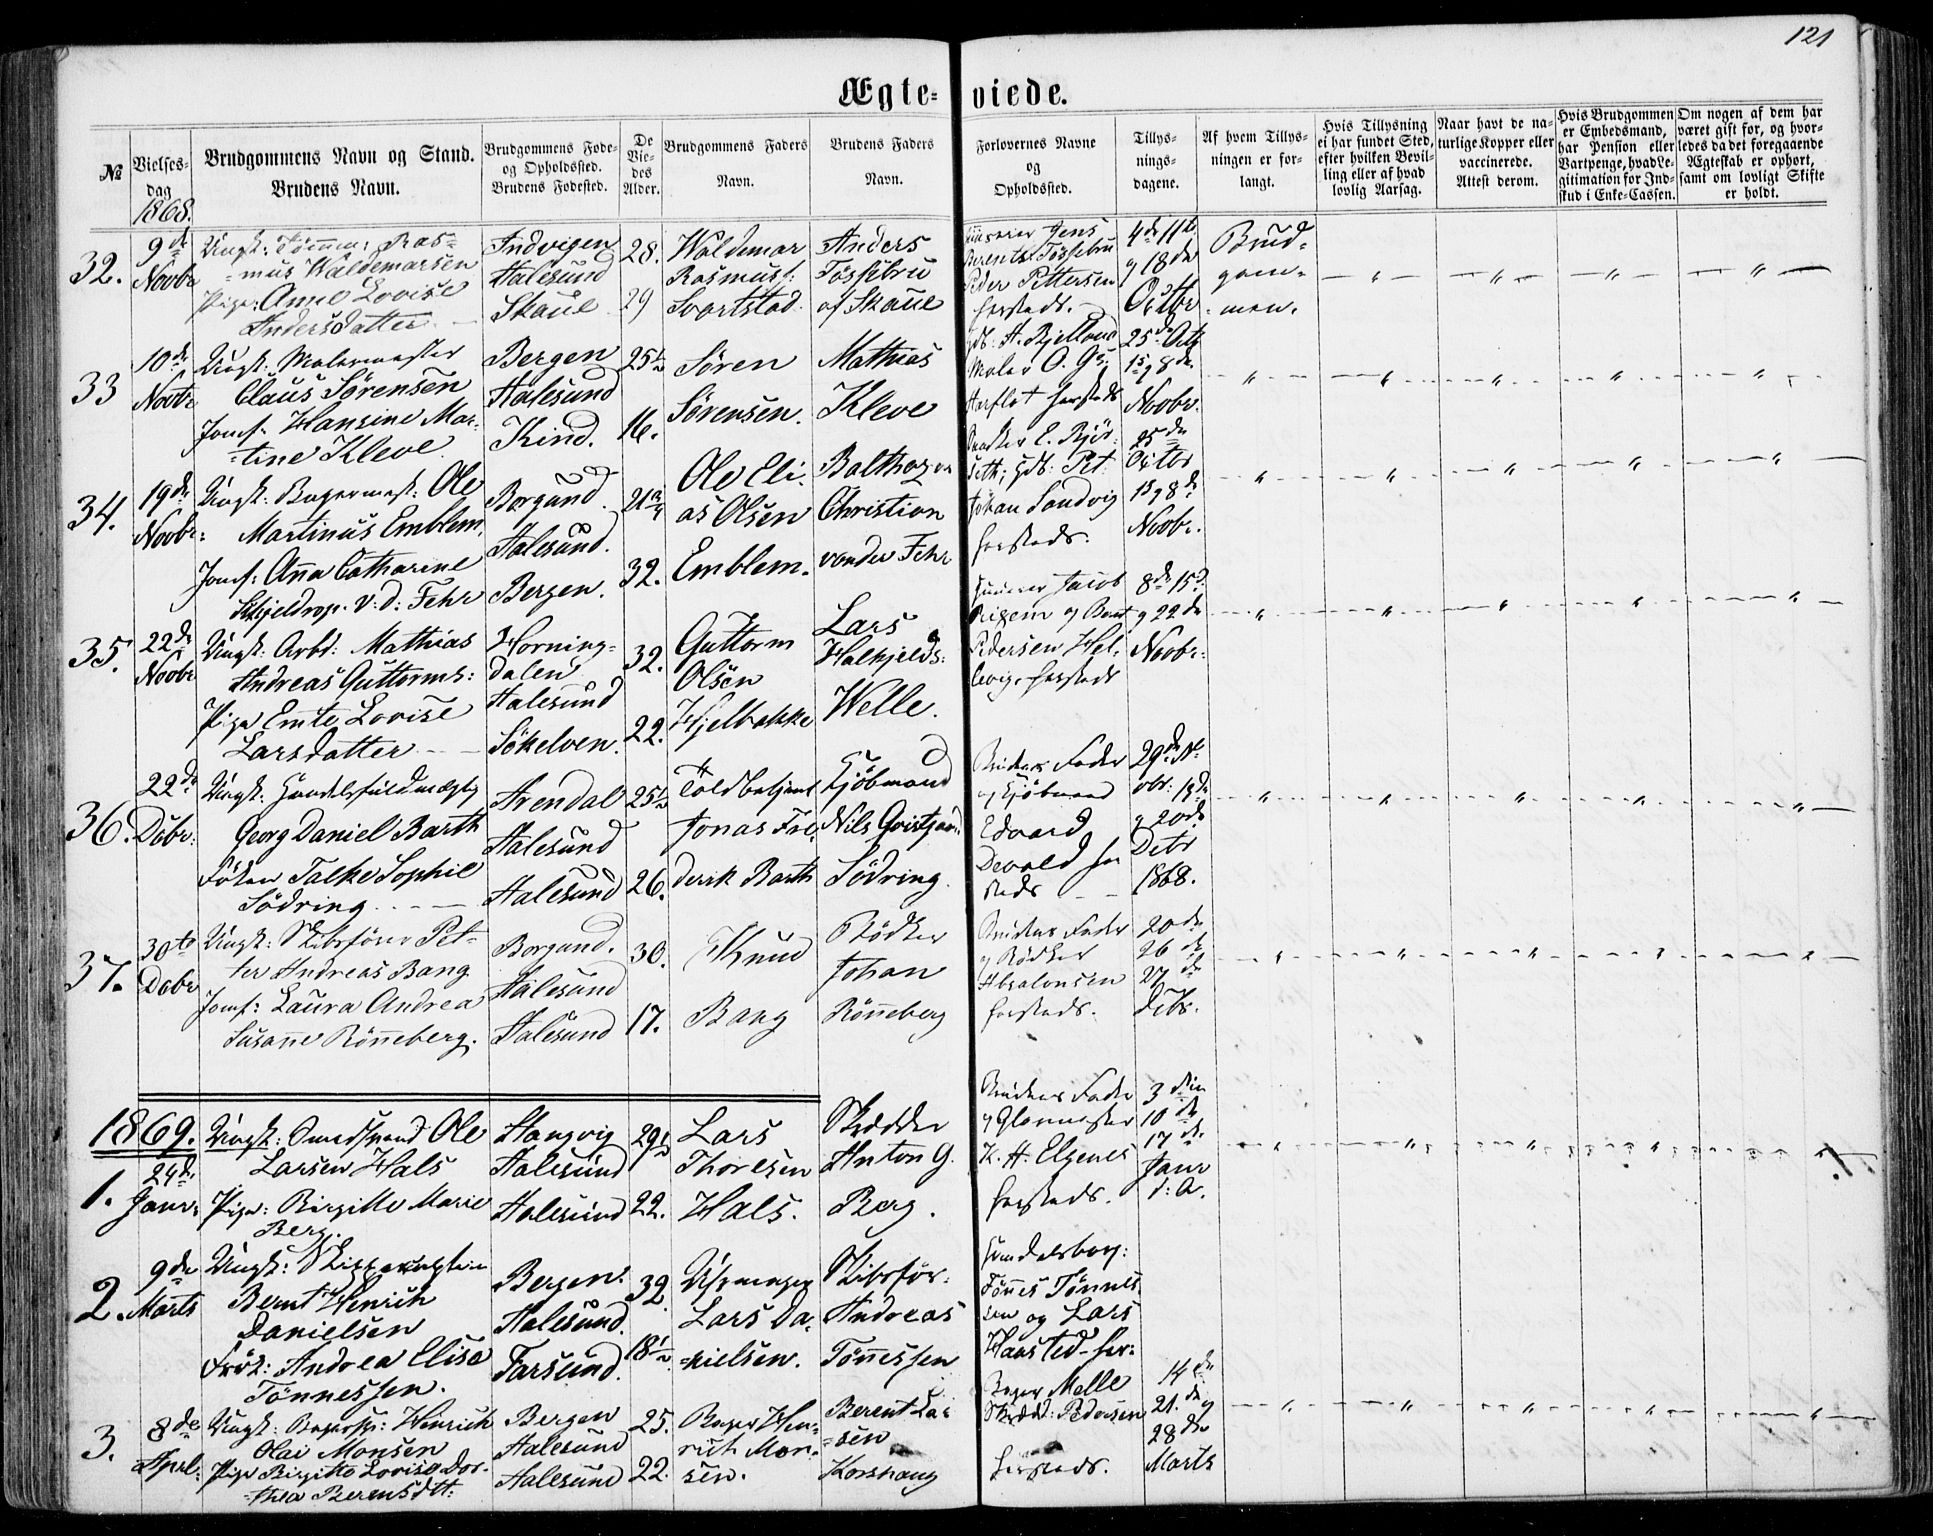 121
Ægte-viede.
№
Vielses-
dag
1868.
Brudgommens Navn og Stand.
Brudens Navn.
Brudgommens Føde-
og Opholdssted.
Brudens Fødested.
De
Vie-
des
Alder.
Brudgommens Faders
Navn.
Brudens Faders
Navn.
Forlovernes Navne
og
Opholdssted.
Tillys-
nings-
dagene.
Af hvem Tillys-
ningen er for-
langt.
Hvis Tillysning
ei har fundet Sted,
efter hvilken Bevil-
ling eller af hvad
lovlig Aarsag.
Naar havt de na-
turlige Kopper eller
vaccinerede.
Attest derom.
Hvis Brudgommen
er Embedsmand,
har Pension eller
Vartpenge, hvad Le-
gitimation for Ind-
skud i Enke-Cassen.
Om nogen af dem har
været gift før, og hvor-
ledes da det foregaaende
Ægteskab er ophørt,
samt om lovligt Skifte
er holdt.
32.
9de
Novbr
Ungk: Tømm: Ras-
mus Waldemarsen
Pige: Anne Lovise
Andersdatter
Indvigen
Aalesund
Skaue
28.
29
Waldemar
Rasmus:
Svartstad
Anders
Tøssebru
af Skaue
Jens
Berents: Tøssebru
Peder Pettersen
hersteds.
4de 11te
og 18de
Octbr
Brud-
gom-
men.
33
10de
Novbr
Ungk: Malermester
Claus Sørensen
Jomf: Hansine Mar-
tine Kleve.
Bergen
Aalesund
Kind.
25½
16.
Søren
Sørensen.
Mathias
Kleve
A. Kjelland
Maler O. Gs:
Aarflot hersteds
25de Octb
1ste 8de
Novbr.
34.
19de
Novbr:
Ungk: Bagermest: Ole
Martinus Emblem,
Jomf: Anna Catharine
Schjeldrop v: d: Fehr
Borgund
Aalesund.
Bergen.
21¾
32.
Ole Eli-
as Olsen
Emblem.
Balthazar
Christian
vonder Fehr
E. Bjør-
seth; Pet:
Johan Sandvig
hersteds.
25de
Octbr
1ste 8de
Novbr.
35.
22de
Novbr
Ungk: Arbd: Mathias
Andreas Guttorms:
Pige Emte Lovise
Larsdatter
Horning-
dalen
Aalesund
Søkelven.
32.
22.
Guttorm
Olsen
Hjelbakke
Lars
Halkjelds:
Welle.
Jacob
og Bernt
Pedersen Hel-
levig. hersteds
8de 15de
og 22de
Novbr:
36.
22de
Debr:
Ungk: Handelsfuldmægtig
Georg Daniel Barth
Frøken Talke Sophie
Södring
Arendal
Aalesund
Aalesund
25½
26.
Toldbetjent
Jonas Fre-
derik Barth
Kjøbmand
Nils Qvistgaard
Södring.
Brudens Fader
og Kjøbmand
Edvard
Devold her
steds
29de No-
vbr: 13de
og 20de
Debr
1868.
37.
30te
Debr
Ungk: Skibsfører Pet-
ter Andreas Bang
Jomf: Laura Andrea
Susanne Rönneberg.
Borgund.
Aalesund
Aalesund
30.
17.
Knud
Bang
Bødker
Johan
Rönneberg
Brudens Fader
og Bødker
Absalonsen
hersteds.
20de
26de
27de
Debr.
1869.
1.
24de
Janr:
Ungk: Smedsvend Ole
Larsen Hals
Pige: Birgitte Marie
Berg.
Hangvig
Aalesund
Aalesund
29½
22.
Lars
Thoresen
Hals.
Skrædder
Anton G.
Berg.
Brudens Fader
og Glarmester
K. H. Elgenes
hersteds.
3die
10de
17de
Janr
d: A.
2.
9de
Marts
Ungk: Skipper
Bernt Henrich
Danielsen
Frök: Andrea Elise
Tönnessen.
Bergen.
Aalesund.
Farsund.
32
18½
Lars Da-
nielsen.
Skibsfør-
Andreas
Tönnessen
Handelsborg:
Tönnes Tönnes-
sen og Lars
Haasted her:
3.
8de
April:
Ungk: Bagersv: Henrich
Olai Monsen
Pige Birgitte Lovise Dor-
thea Berensdtt:
Bergen
Aalesund
Aalesund
25.
22.
Bager Hen-
rich Mon-
sen.
Berent La-
sen
Korshaug
Bager Melle
Skrædd: Pedersen
hersteds.
14de
21de og
28de
Marts